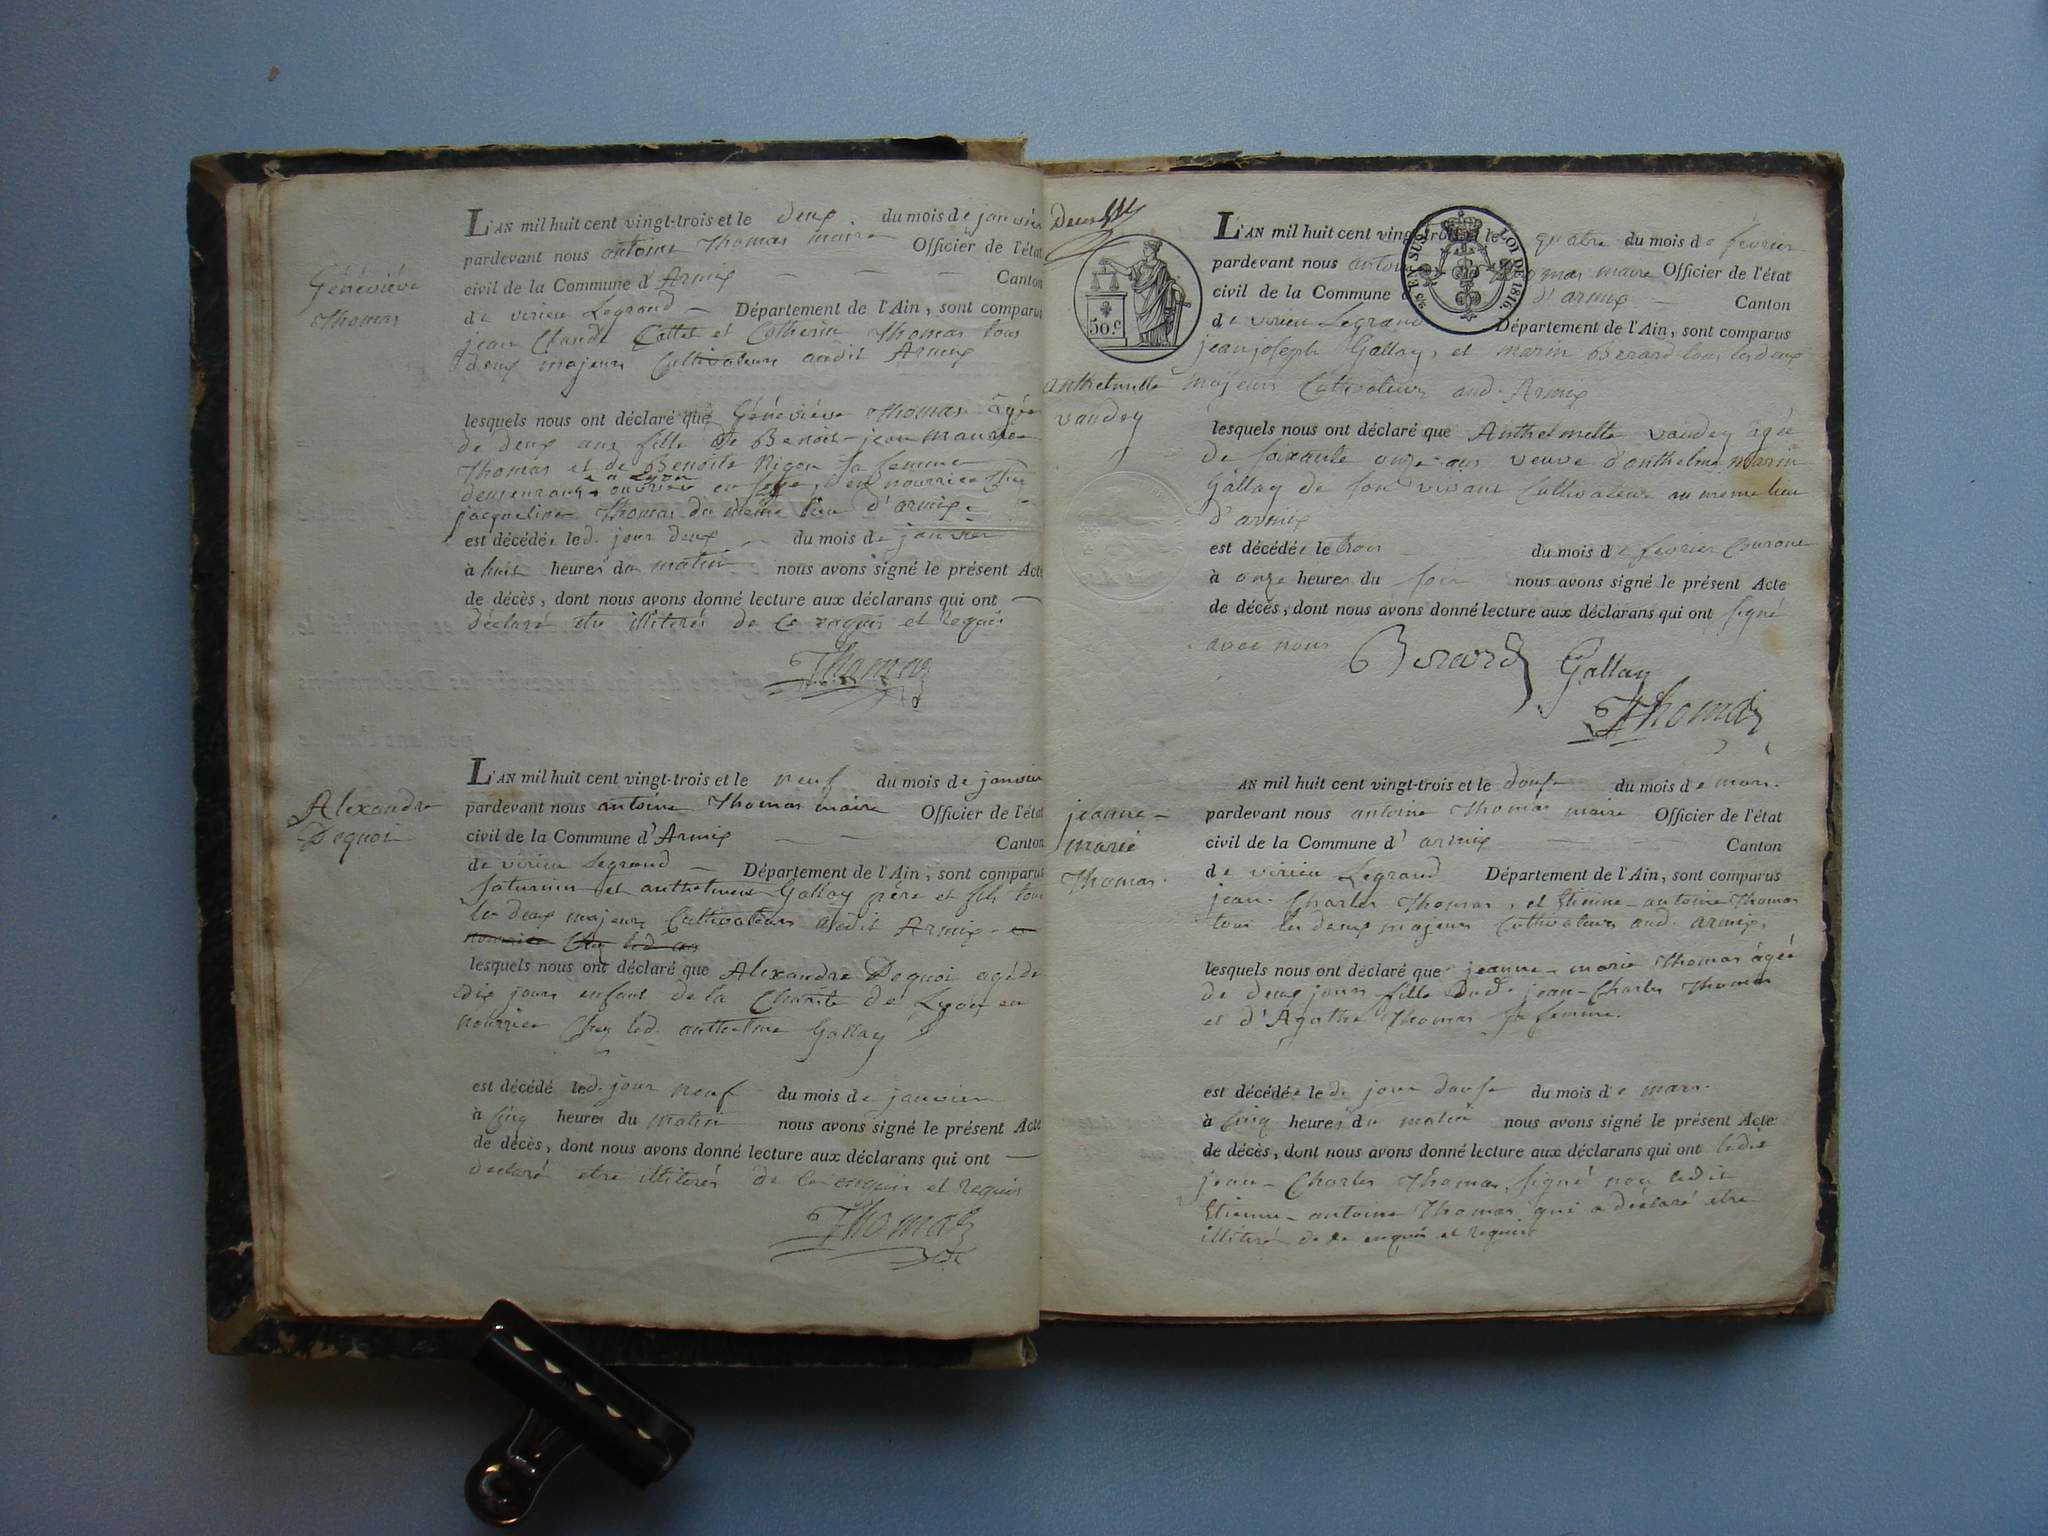 Généviéve
Thomas
L'AN mil huit cent vingt-trois et le deux du mois de janvier
pardevant nous antoine Thomas maire Officier de l'état
civil de la Commune d'Armix Canton
de virieu Legrand Département de l'Ain, sont comparus
jean Claude Cattet et Catherin Thomas tous
deux majeurs Cultivateurs audit Armix
lesquels nous ont déclaré que Généviéve Thomas âgée
de deux ans fille de Benoit-jean Maurice
Thomas et de Benoite Nigon sa femme
à Lyon
demeurant ouvriers en soye, en nourrice Chez
jacqueline Thomas du même lieu d'armix.
est décédée led. jour deux du mois de janvier
à huit heures du matin nous avons signé le présent Acte
de décès, dont nous avons donné lecture aux déclarans qui ont
déclaré etre illiterés de ce enquis et requis
Thomas
Alexandre
Dequoi
L'AN mil huit cent vingt-trois et le neuf du mois de janvier
pardevant nous antoine Thomas maire Officier de l'état
civil de la Commune d'Armix Canton
de virieu Legrand Département de l'Ain, sont comparus
saturnin et anthelme Gallay père et fils tous
les deux majeurs Cultivateurs audit Armix
lesquels nous ont déclaré que Alexandre Dequoi agé de
dix jours enfant de la Charité de Lyon en
nourrice Chez led. anthelme Gallay
est décédé led. jour neuf du mois de janvier
à Cinq heures du matin nous avons signé le présent Acte
de décès, dont nous avons donné lecture aux déclarans qui ont
declaré etre illiterés de ce enquis et requis
Thomas
Deux
50 c
LOI DE 1816.
Anthelmette
vaudey
L'AN mil huit cent vingt-trois et le quatre du mois de fevrier
pardevant nous antoine Thomas maire Officier de l'état
civil de la Commune d'armix Canton
de virieu Legrand Département de l'Ain, sont comparus
jean joseph Gallay, et marin Berard tous les deux
majeurs Cultivateurs aud. Armix
lesquels nous ont déclaré que Anthelmette vaudey âgée
de soixante onze ans veuve d'anthelme marin
Gallay de son vivant Cultivateur au même lieu
d'armix
est décédée le trois du mois de fevrier Courant
à onze heures du soir nous avons signé le présent Acte
de décès, dont nous avons donné lecture aux déclarans qui ont signé
avec nous Berard Gallay
Thomas
jeanne-
marie
Thomas.
AN mil huit cent vingt-trois et le douse du mois de mars.
pardevant nous antoine Thomas maire Officier de l'état
civil de la Commune d'armix Canton
de virieu Legrand Département de l'Ain, sont comparus
jean-Charles Thomas, et Etienne-antoine Thomas
tous les deux majeurs Cultivateurs aud. armix.
lesquels nous ont déclaré que jeanne-marie Thomas âgée
de deux jours fille dud. jean-Charles Thomas
et d'Agathe Thomas sa femme.
est décédée led. jour douse du mois de mars.
à Cinq heures du matin nous avons signé le présent Acte
de décès, dont nous avons donné lecture aux déclarans qui ont ledit
jean-Charles Thomas, signé non ledit
Etienne-antoine Thomas qui a déclaré etre
illiteré de ce enquis et requis